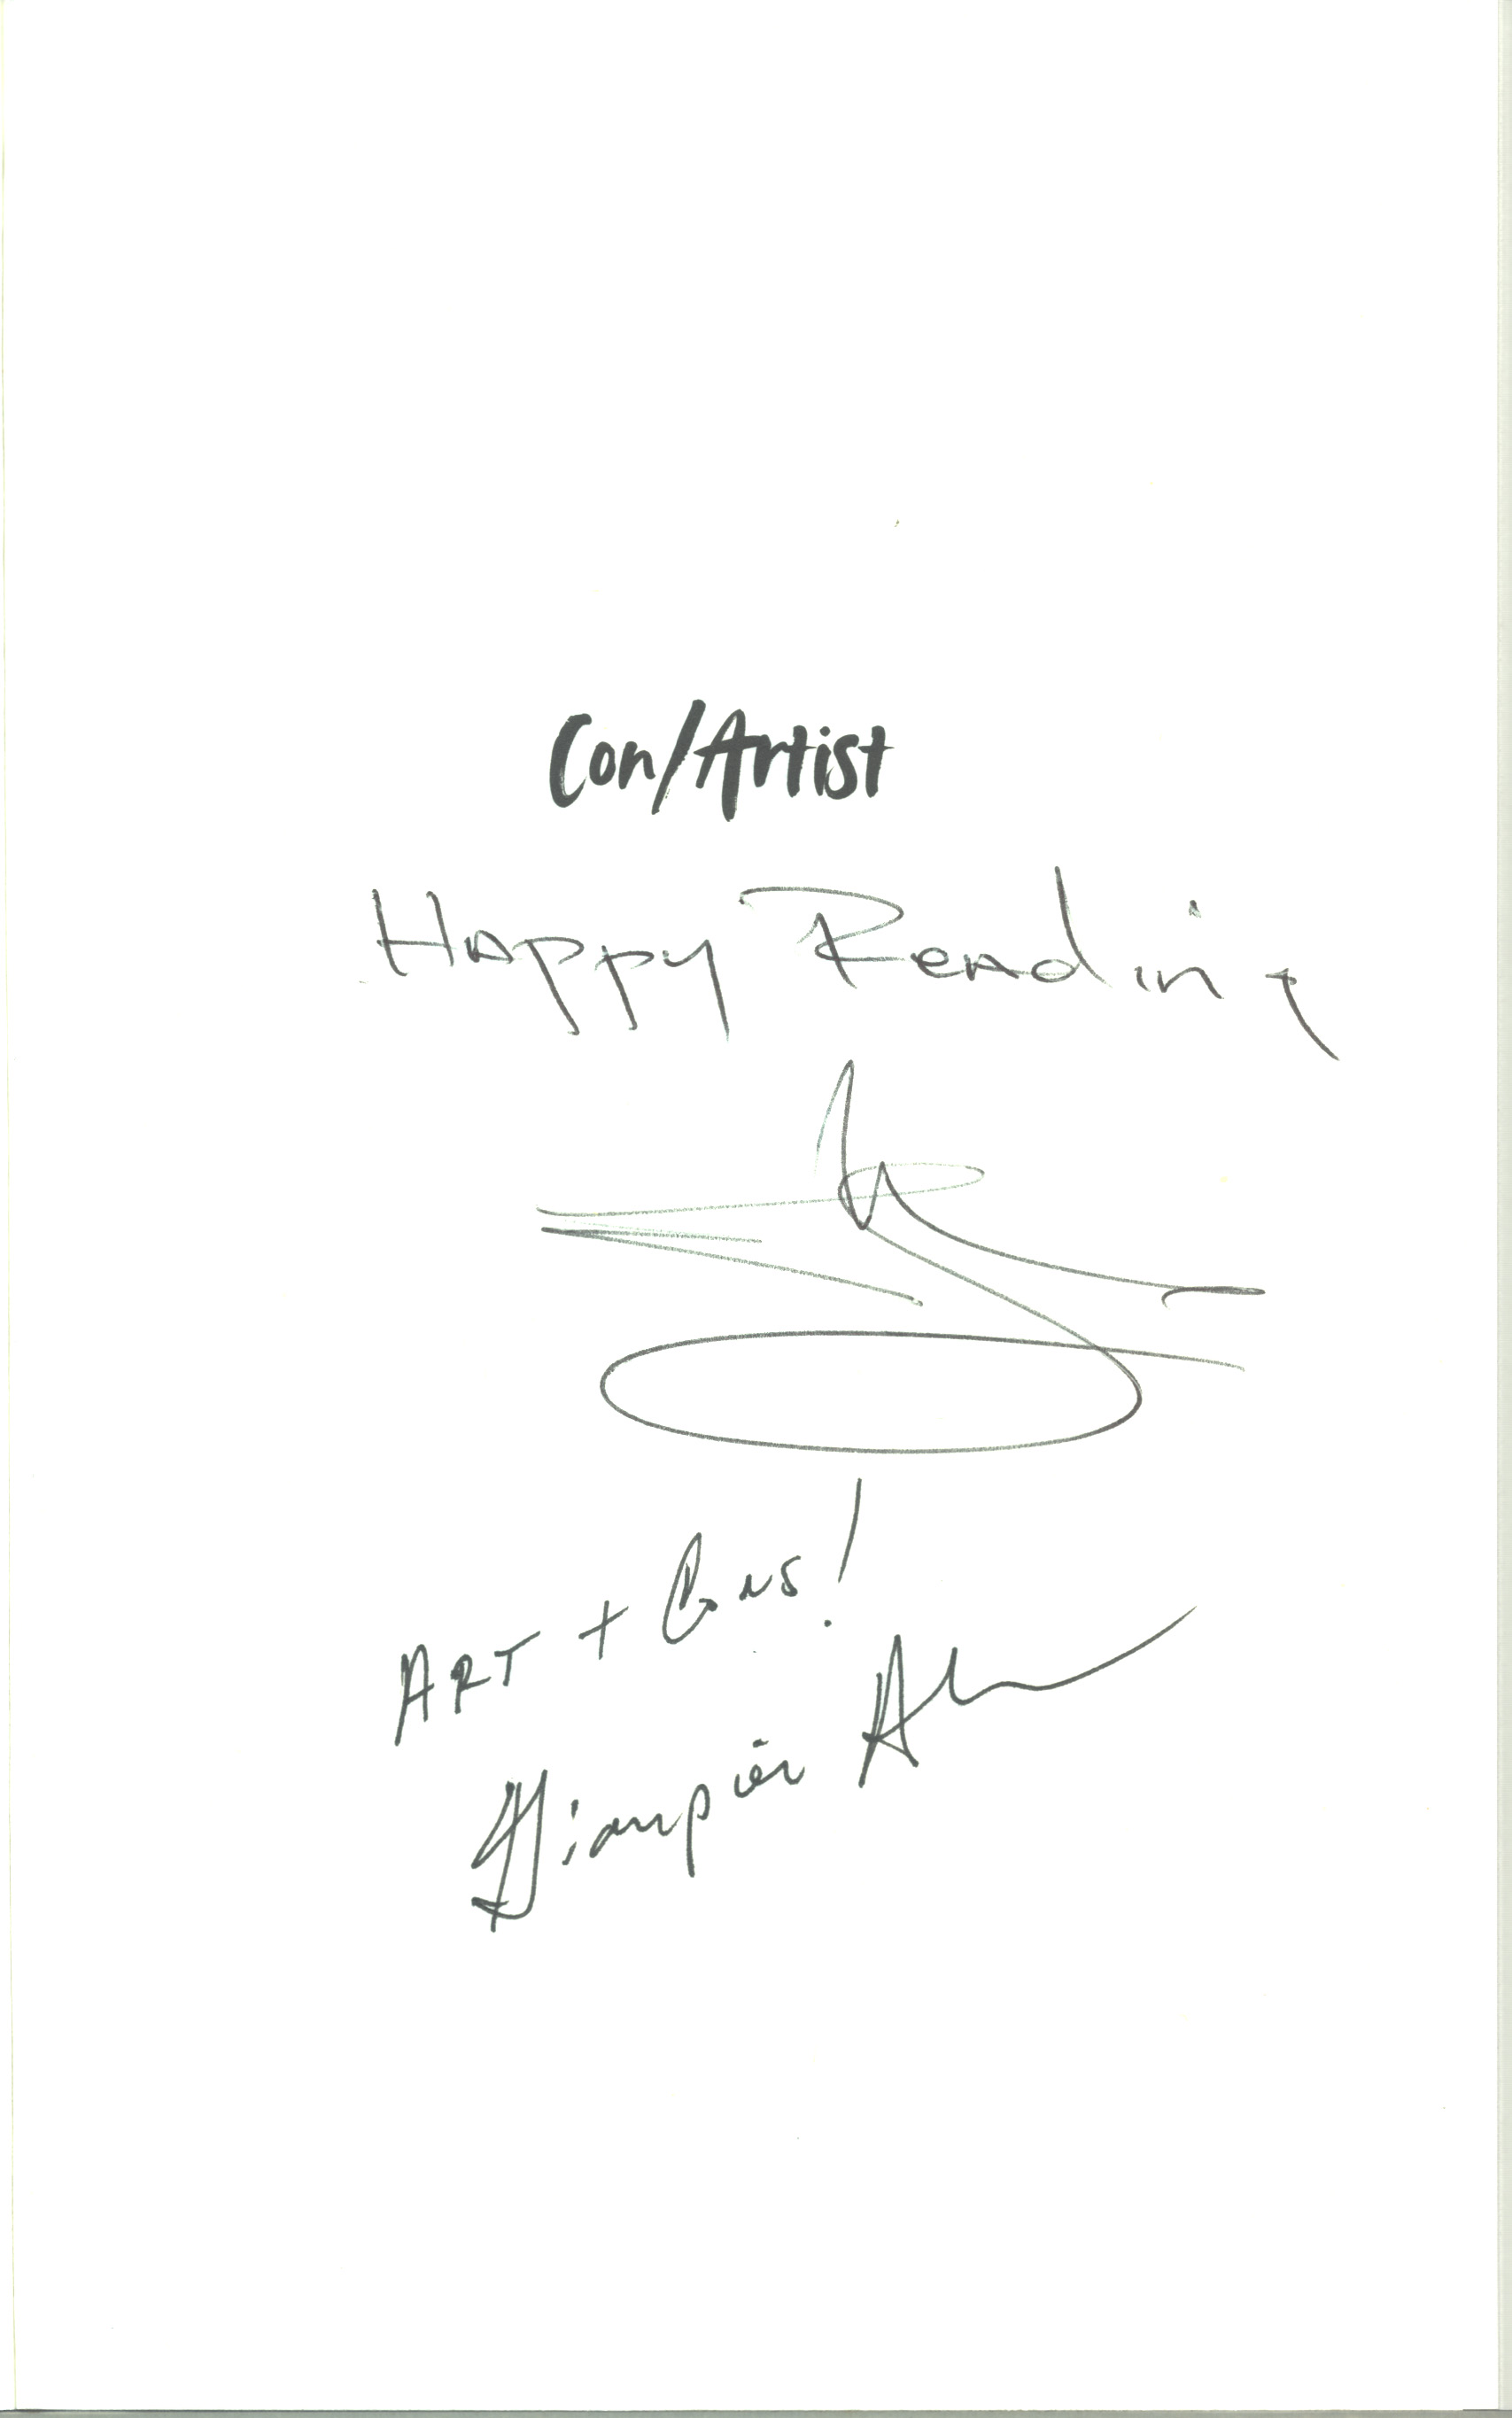 Con/Artist
Happy Reading
ART + Cons!
Giampiero